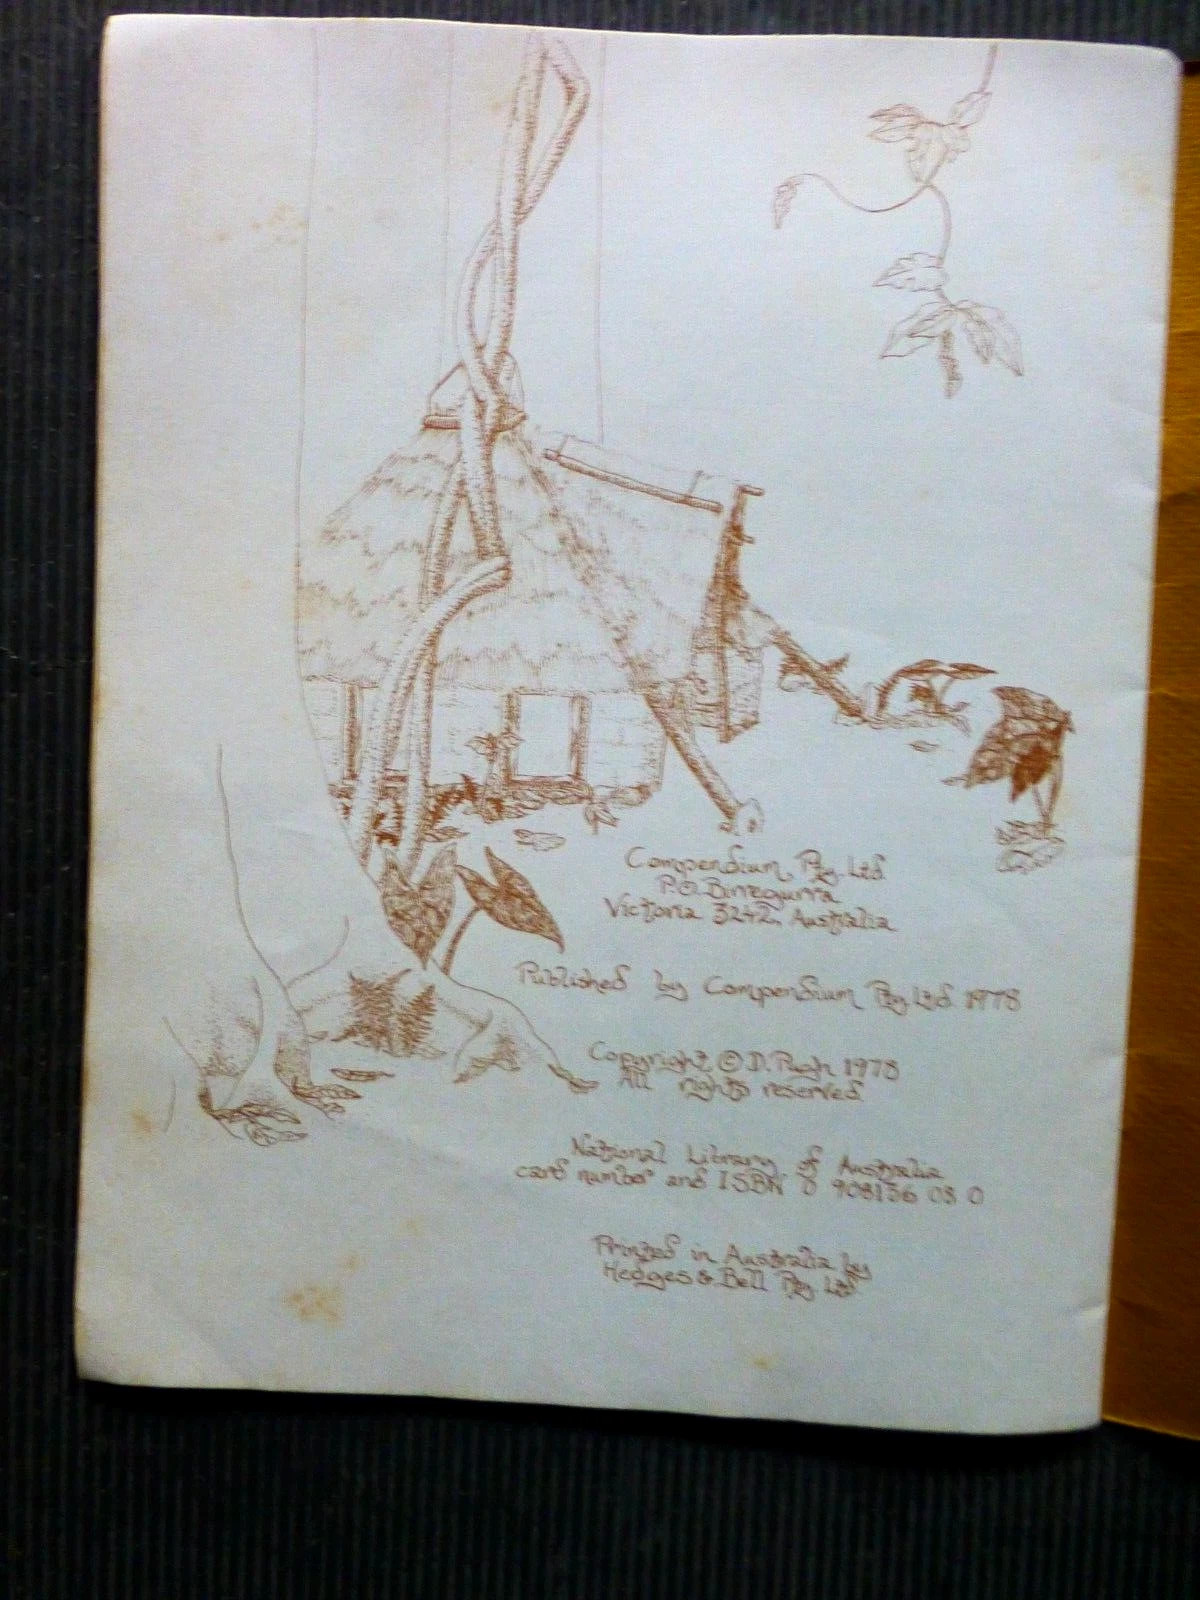 Compendium Pty. Ltd.
P.O. Birregurra
Victoria 3242, Australia
Published by Compendium Pty. Ltd. 1978
Copyright © D. Pugh 1978
All rights reserved
National Library of Australia
card number and ISBN 0 908156 03 0
Printed in Australia by
Hedges & Bell Pty. Ltd.